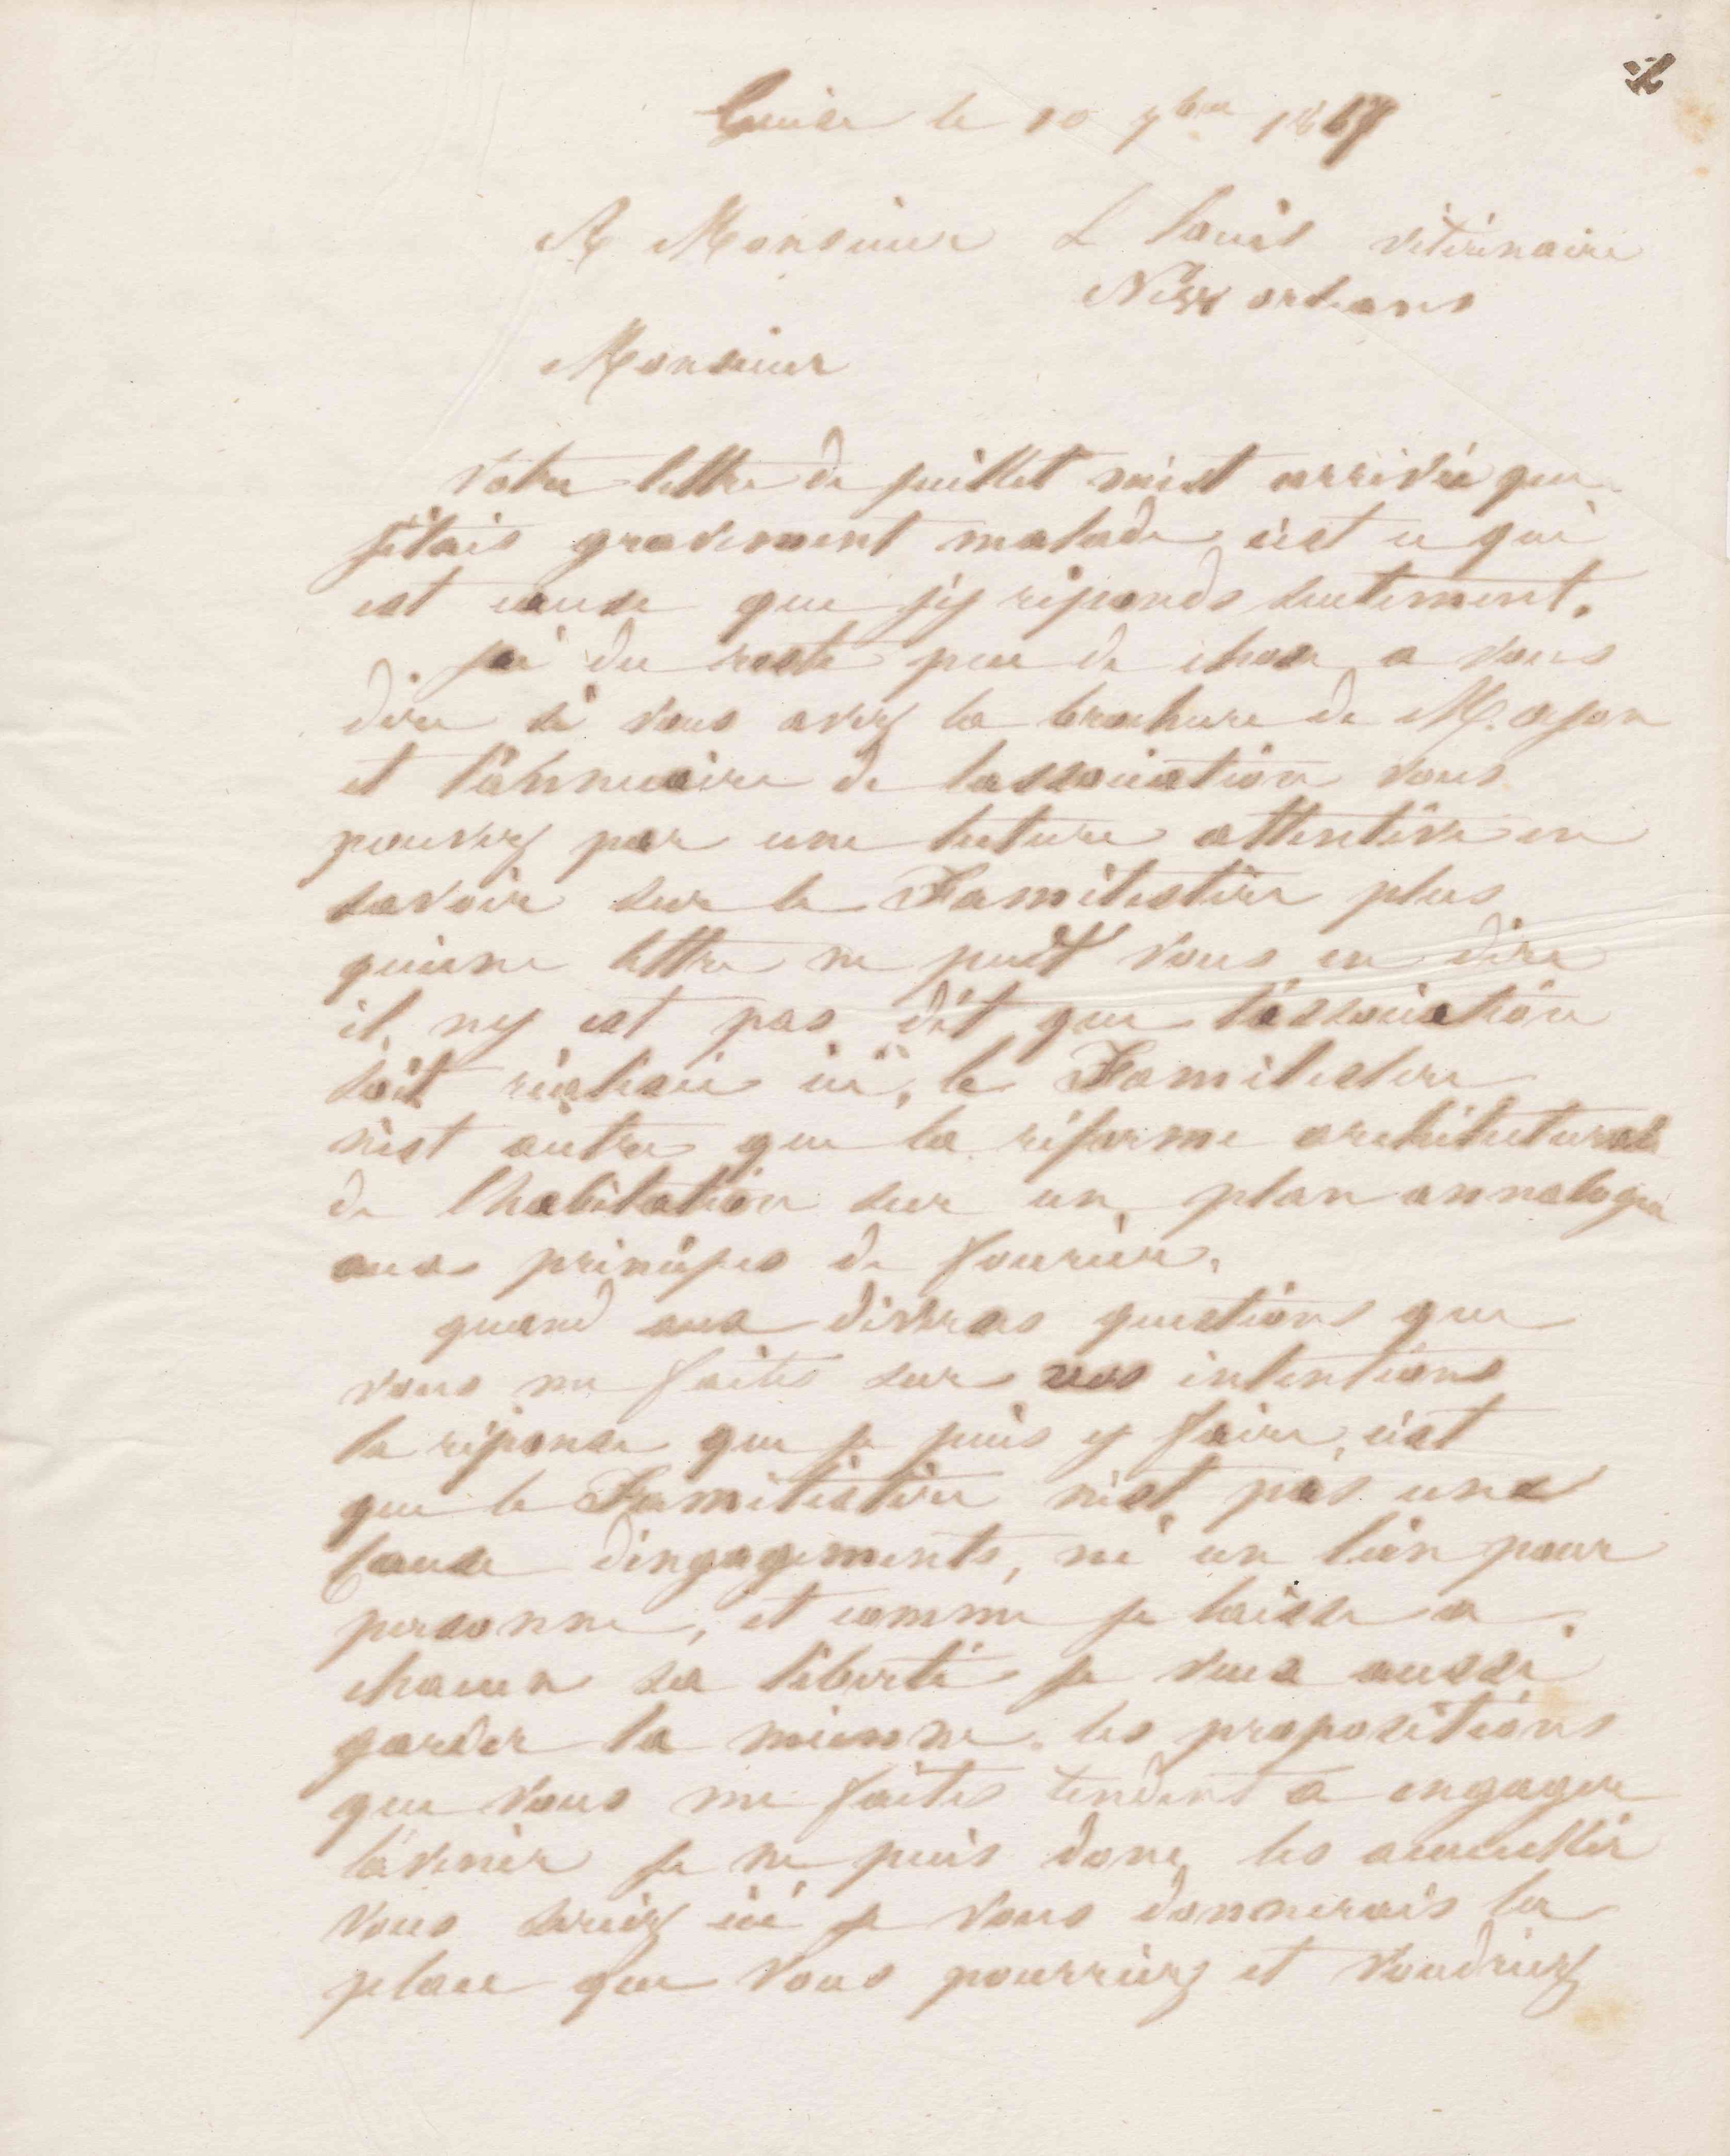 Guise le 10 7bre 1867
A Monsieur L Louis vétérinaire
New orleans
Monsieur
Votre lettre de juillet m'est arrivée que
j'étais gravement malade c'est ce qui
est cause que j'y réponds seulement.
j'ai du reste peu de chose a vous
dire si vous avez la brochure de M. oyon
et l'annuaire de l'association vous
pouvez par une lecture attentive en
savoir sur le Familistère plus
qu'une lettre ne peut vous en dire
il n'y est pas dit que l'association
soit réalisée ici, le Familistere
n'est autre que la réforme architecturale
de l'habitation sur un plan annalogue
aux principes de fourier.
quand aux diverses questions que
vous me faites sur vos intentions
la réponse que je puis y faire, c'est
que le Familistère n'est pas une
cause d'engagements, ni un lien pour
personne, et comme je laisse a
chacun sa liberté je veux aussi
garder la mienne. les propositions
que vous me faites tendent a engager
l'avenir je ne puis donc les accueillir
vous seriez ici je vous donnerais la
place que vous pourriez et voudriez